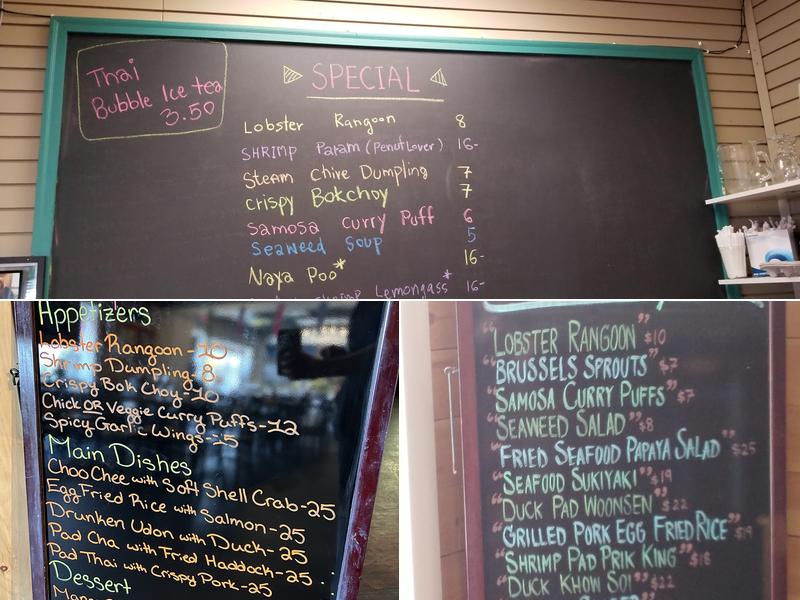 Thai
Bubble Ice tea
3.50
SPECIAL
Lobster Rangoon 8
SHRIMP Param (Penut Lover) 16-
Steam Chive Dumpling 7
Crispy Bokchoy 7
Samosa Curry Puff 6
Seaweed Soup 5
Naya Poo* 16-
Shrimp Lemongass* 16-
Appetizers
Lobster Rangoon - 10
Shrimp Dumpling - 8
Crispy Bok Choy - 10
Chick OR Veggie Curry Puffs - 12
Spicy Garlic Wings - 15
Main Dishes
Choo Chee with Soft Shell Crab - 25
Egg Fried Rice with Salmon - 25
Drunken Udon with Duck - 25
Pad Cha with Fried Haddock - 25
Pad Thai with Crispy Pork - 25
Dessert
"LOBSTER RANGOON" $10
"BRUSSELS SPROUTS" $7
"SAMOSA CURRY PUFFS" $7
"SEAWEED SALAD" $8
"FRIED SEAFOOD PAPAYA SALAD" $25
"SEAFOOD SUKIYAKI" $19
"DUCK PAD WOONSEN" $22
"GRILLED PORK EGG FRIED RICE" $19
"SHRIMP PAD PRIK KING" $18
"DUCK KHOW SOI" $22